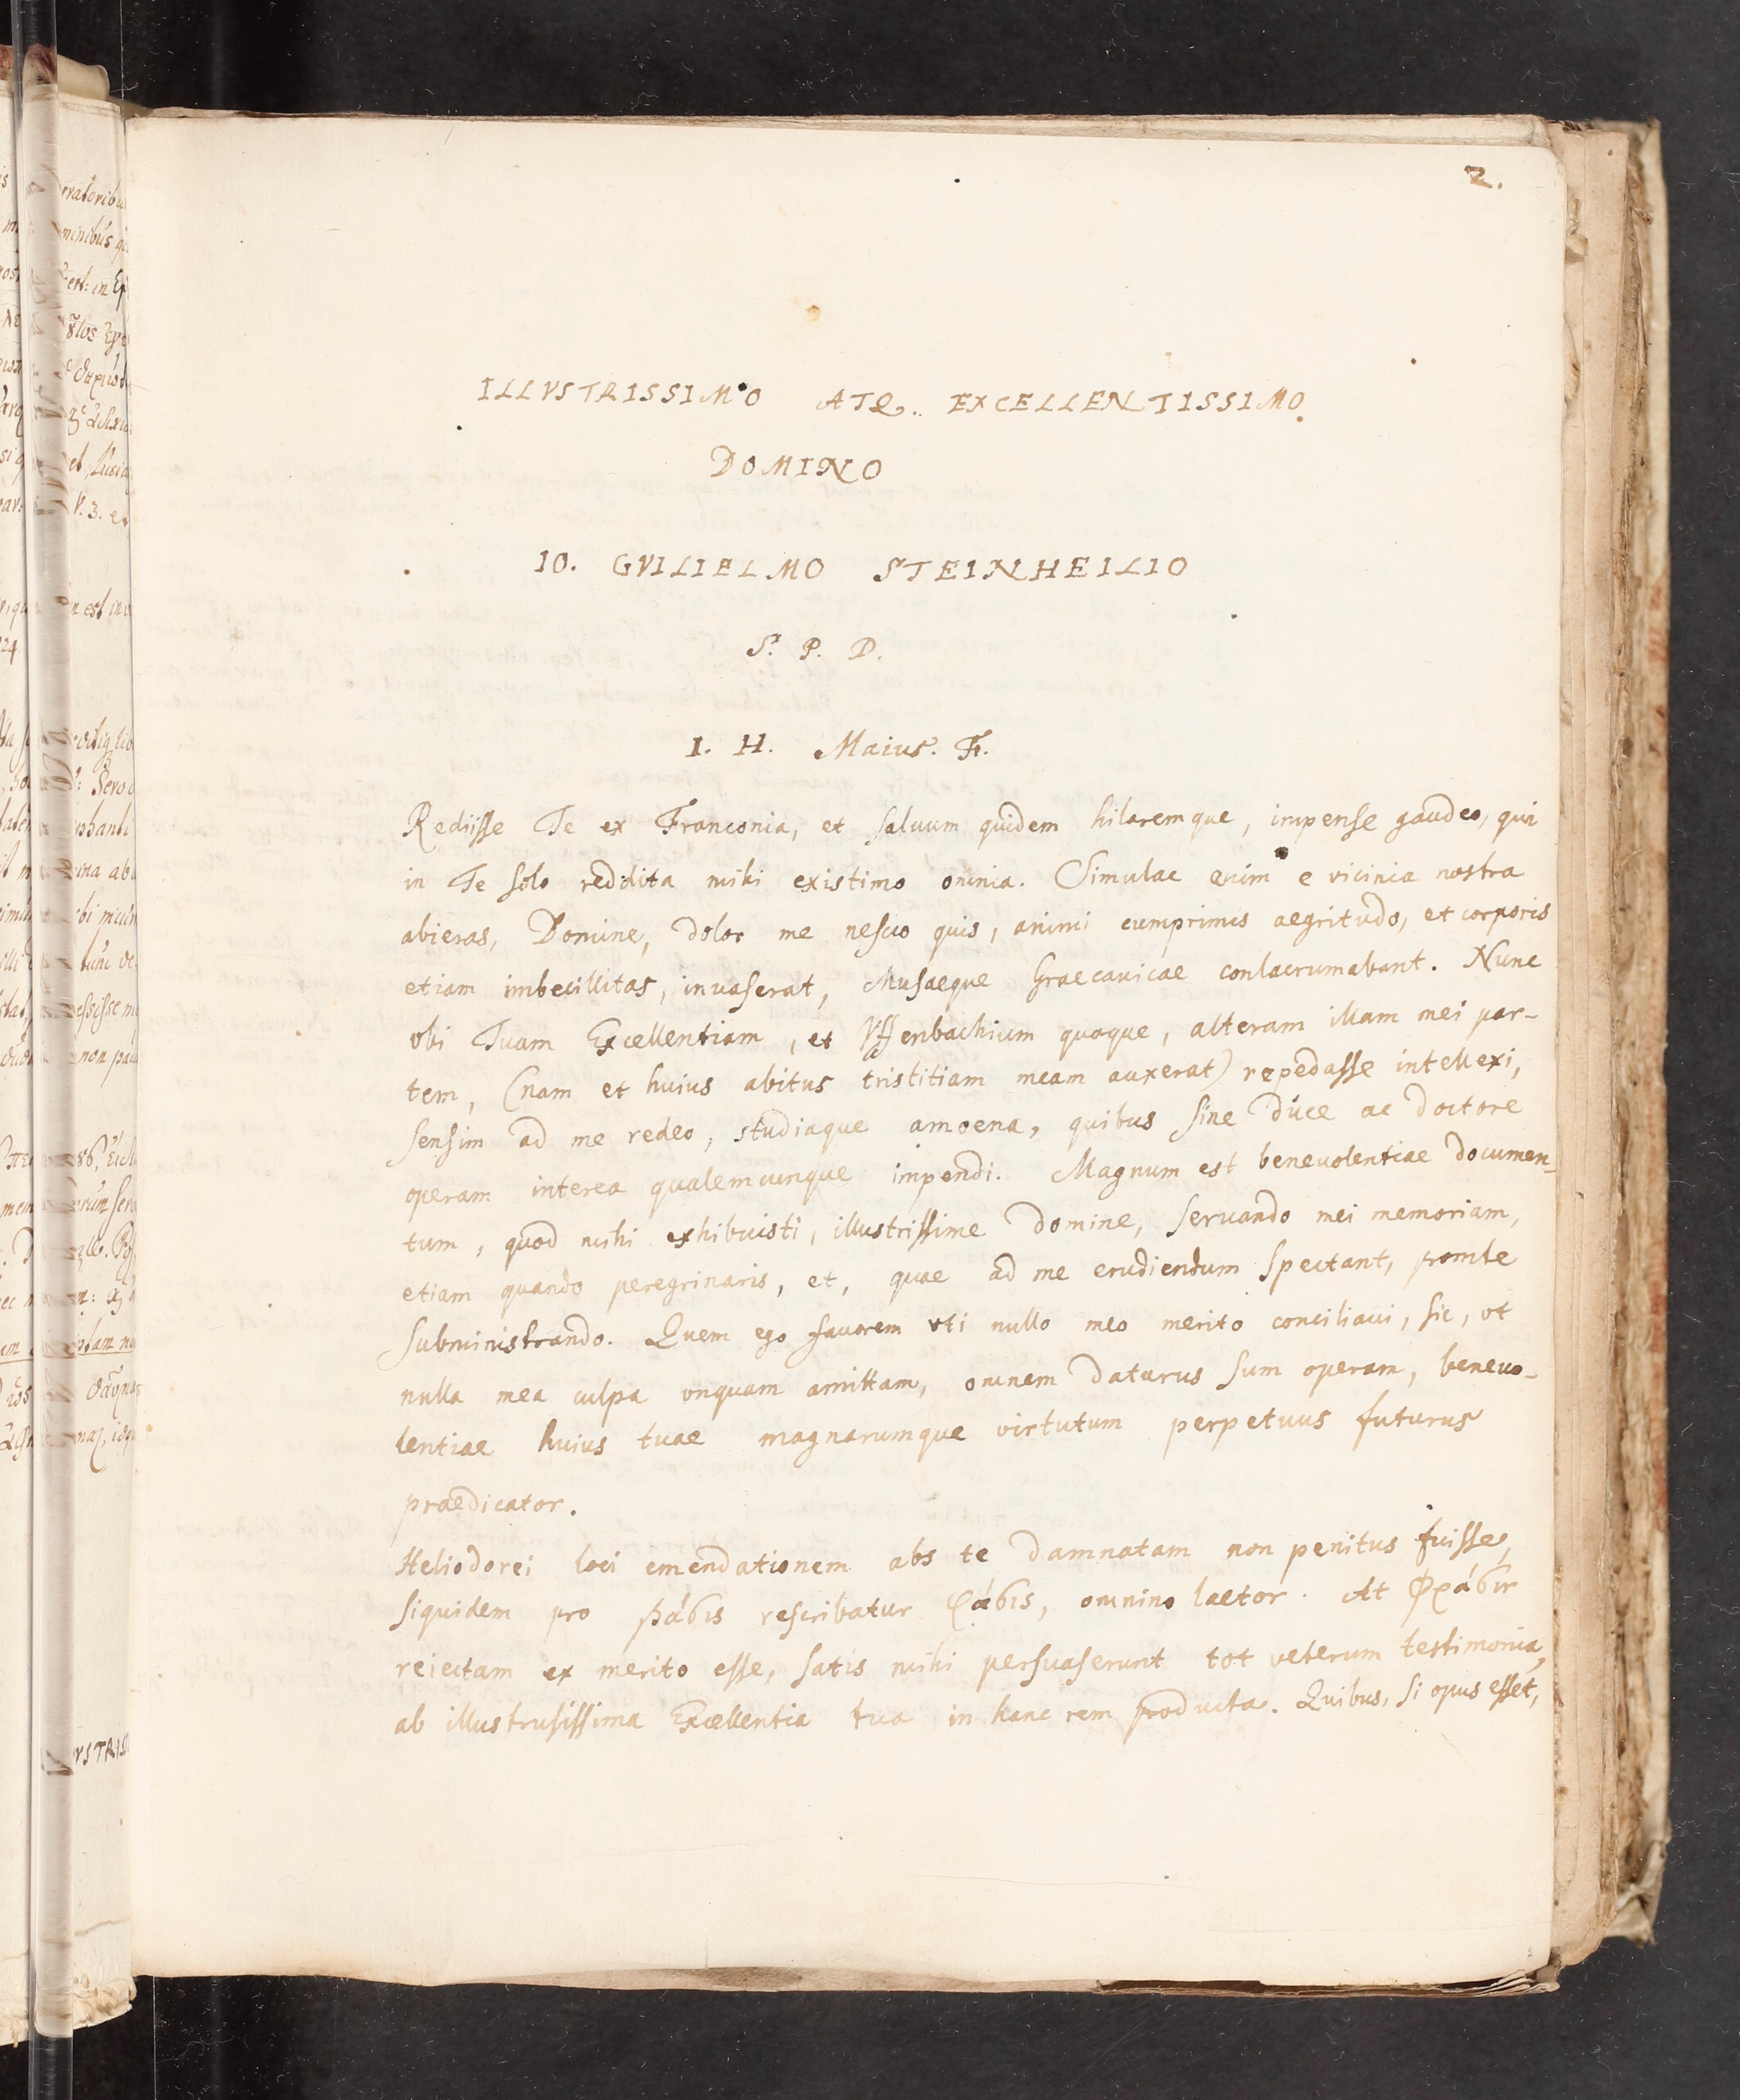 2.
ILLVSTRISSIMO ATQ. EXCELLENTISSIMO
DOMINO
IO. GVILIELMO STEINHEILIO
S. P. D.
I. H. Maius. F.
Rediisse Te ex Franconia, et saluum quidem hilaremque, impense gaudeo, qui
in Te solo reddita mihi existimo omnia. Simulac enim e vicinia nostra
abieras, Domine, dolor me nescio quis, animi cumprimis aegritudo, et corporis
etiam imbecillitas, inuaserat, Musaeque Graecanicae conlacrumabant. Nunc
vbi Tuam Excellentiam, et Vffenbachium quoque, alteram illam mei par-
tem, (nam et huius abitus tristitiam meam auxerat) repedasse intellexi,
sensim ad me redeo, studiaque amoena, quibus sine duce ac doctore
operam interea qualemcunque impendi. Magnum est beneuolentiae documen-
tum, quod mihi exhibuisti, illustrissime Domine, seruando mei memoriam,
etiam quando peregrinaris, et, quae ad me erudiendum spectant, promte
subministrando. Quem ego fauorem vti nullo meo merito conciliaui, sic, vt
nulla mea culpa vnquam amittam, omnem daturus sum operam, beneuo-
lentiae huius tuae magnarumque virtutum perpetuus futurus
praedicator.
Heliodorei loci emendationem abs te damnatam non penitus fuisse,
siquidem pro ῥάβις rescribatur φάβις, omnino laetor. At φράβιν
reiectam ex merito esse, satis mihi persuaserunt tot veterum testimonia,
ab illustrusissima Excellentia tua in hanc rem producta. Quibus, si opus esset,